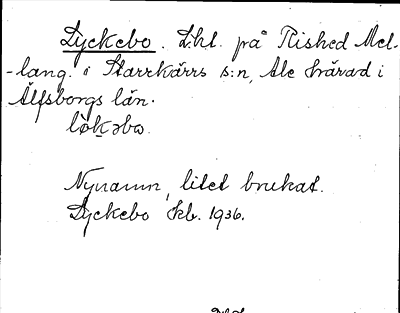 Lyckebo. Lht. på Rished Mel-
-lang. i Starrkärrs s:n, Ale härad i
Älfsborgs län.
Nynamn, litet brukat.
Lyckebo Kb. 1936.